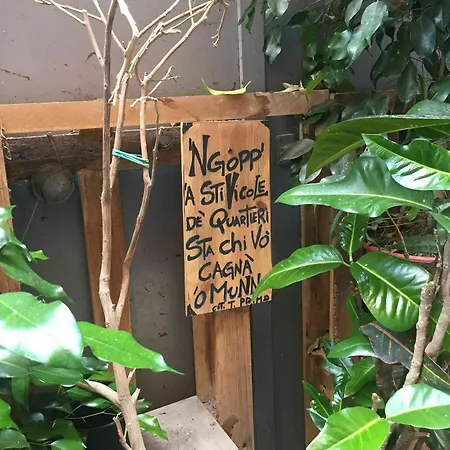 'NGOPP'
'A STI VICOLE
DÈ QUARTIERI
STA CHI VÒ
CAGNÀ
'O MUNN'
CIT. T. PD. MB